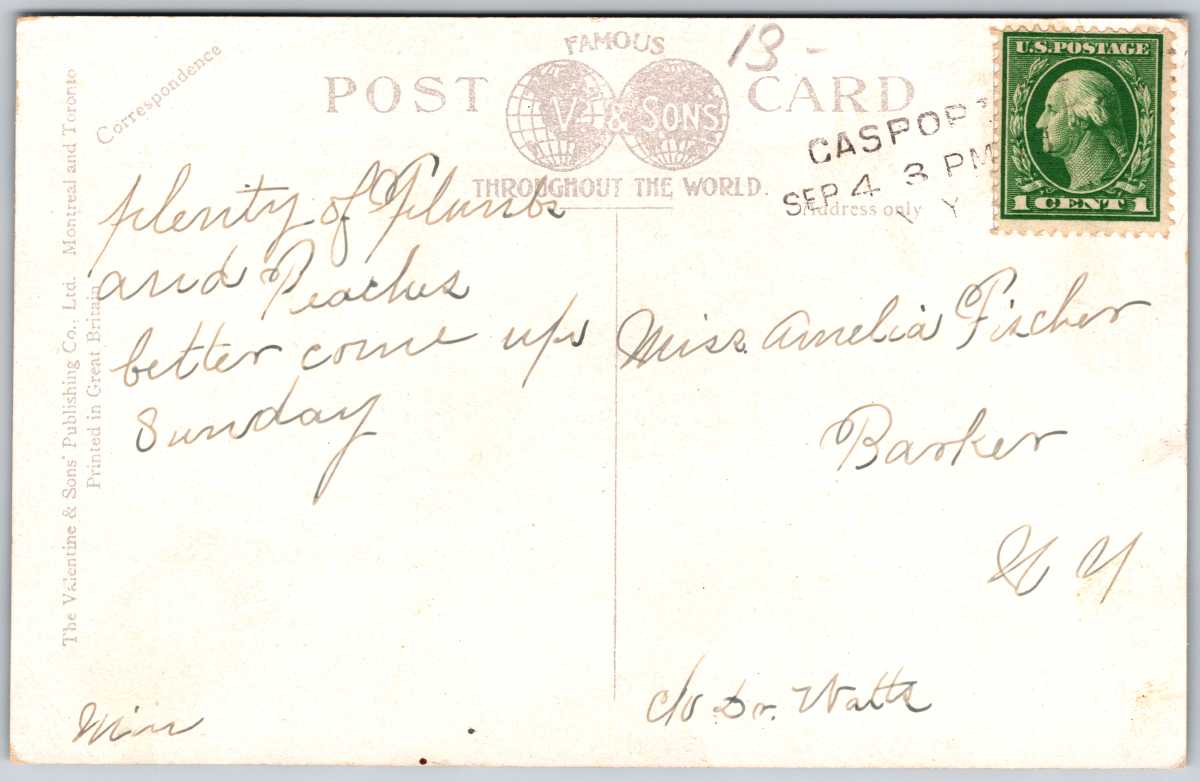 Correspondence
POST CARD
FAMOUS
V. & SONS
THROUGHOUT THE WORLD.
13 -
CASPORT
SEP 4 3 PM
N Y
Address only
U.S. POSTAGE
1 CENT 1
plenty of Plumbs
and Peaches
better come up
Sunday
Miss Amelia Fischer
Barker
N Y
c/o Dr. Watts
The Valentine & Sons' Publishing Co., Ltd. Montreal and Toronto
Printed in Great Britain